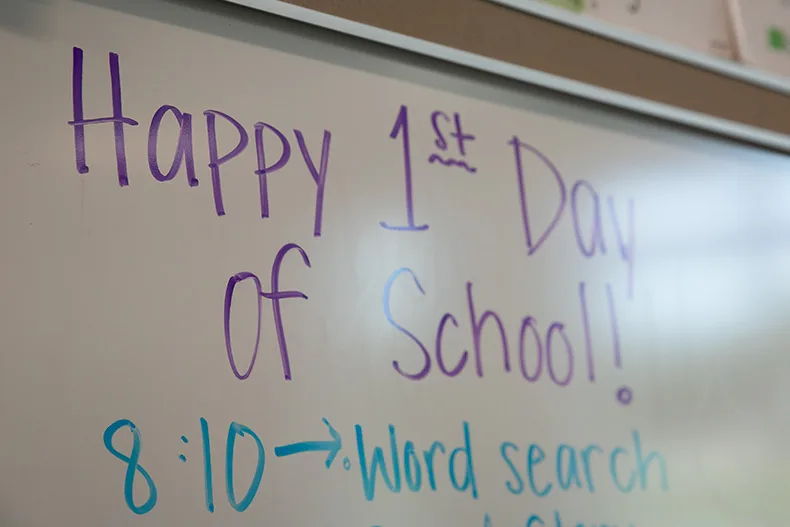 Happy 1st Day
of School!
8:10 → Word search